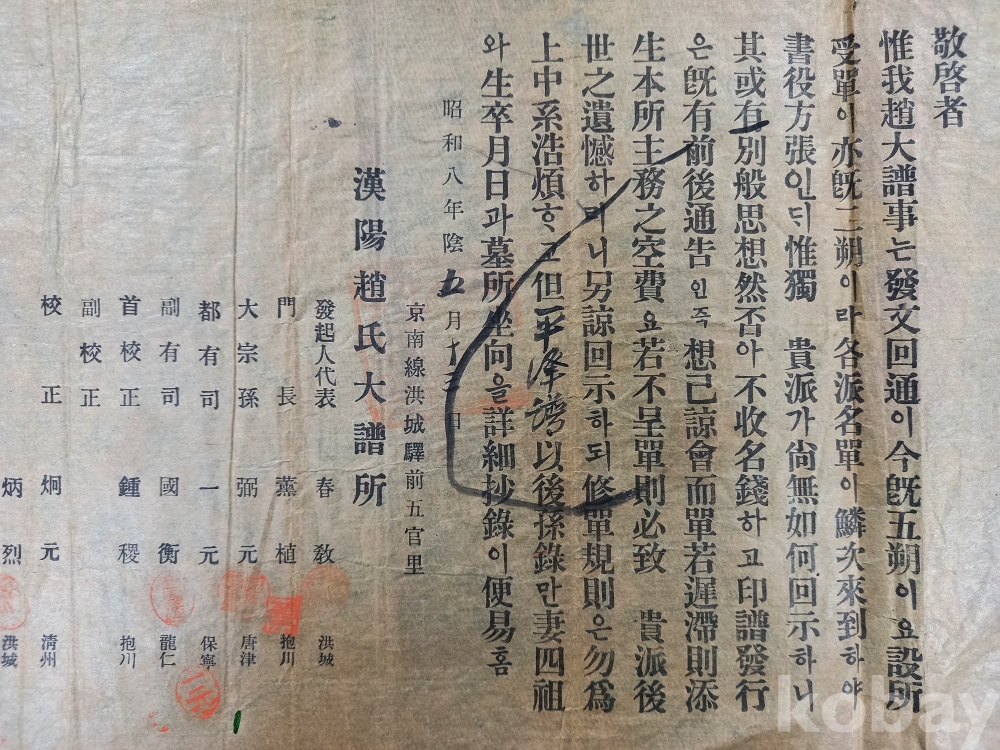 敬啓者
惟我趙大譜事는發文回通이今旣五朔이요設所
受單이亦旣二朔이라各派名單이鱗次來到하야
書役方張인듸惟獨 貴派가尙無如何回示하니
其或有別般思想然否아不收名錢하고印譜發行
은旣有前後通告인즉想已諒會而單若遲滯則添
生本所主務之空費요若不呈單則必致 貴派後
世之遺憾하리니另諒回示하되修單規則은勿爲
上中系浩煩하고但 以後孫錄만妻四祖
와生卒月日과墓所坐向을詳細抄錄이便易홈
昭和八年陰五月十三日
京南線洪城驛前五官里
漢陽趙氏大譜所
發起人代表 春敎 洪城
門長 薰植 抱川
大宗孫 弼元 唐津
都有司 一元 保寧
副有司 國衡 龍仁
首校正 鍾稷 抱川
副校正
校正 炯元 淸州
炳烈 洪城
kobay